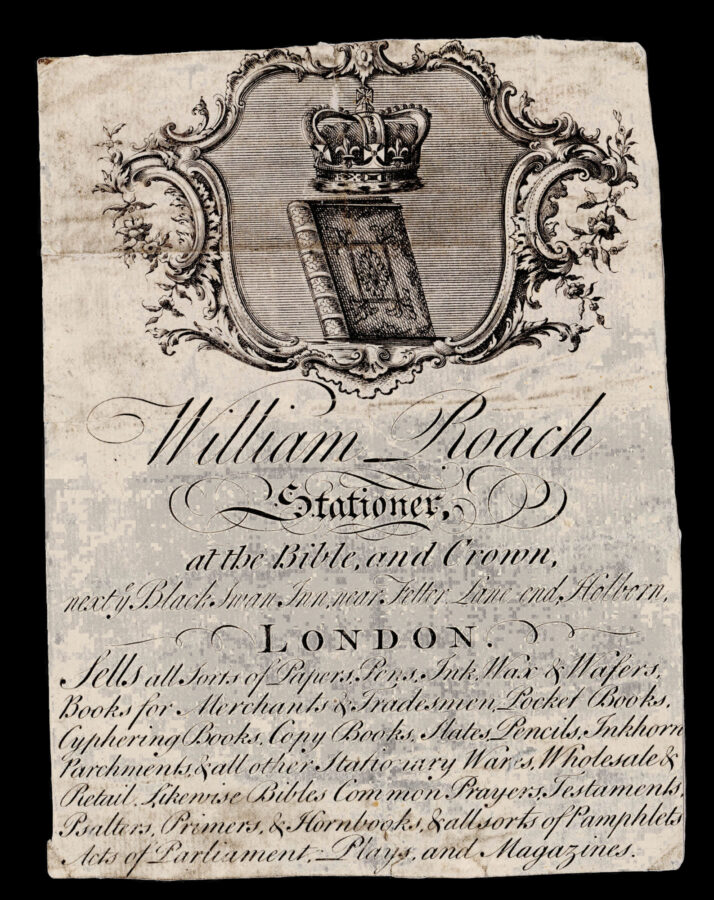 William Roach
Stationer,
at the Bible, and Crown,
next yͤ Black Swan Inn, near Fetter Lane end, Holborn,
LONDON.
Sells all Sorts of Papers, Pens, Ink, Wax & Wafers,
Books for Merchants & Tradesmen, Pocket Books,
Cyphering Books, Copy Books, Slates, Pencils, Inkhorn
Parchments, & all other Stationary Wares, Wholesale &
Retail. Likewise Bibles Common Prayers, Testaments,
Psalters, Primers, & Hornbooks, & all sorts of Pamphlets
Acts of Parliament, Plays, and Magazines.